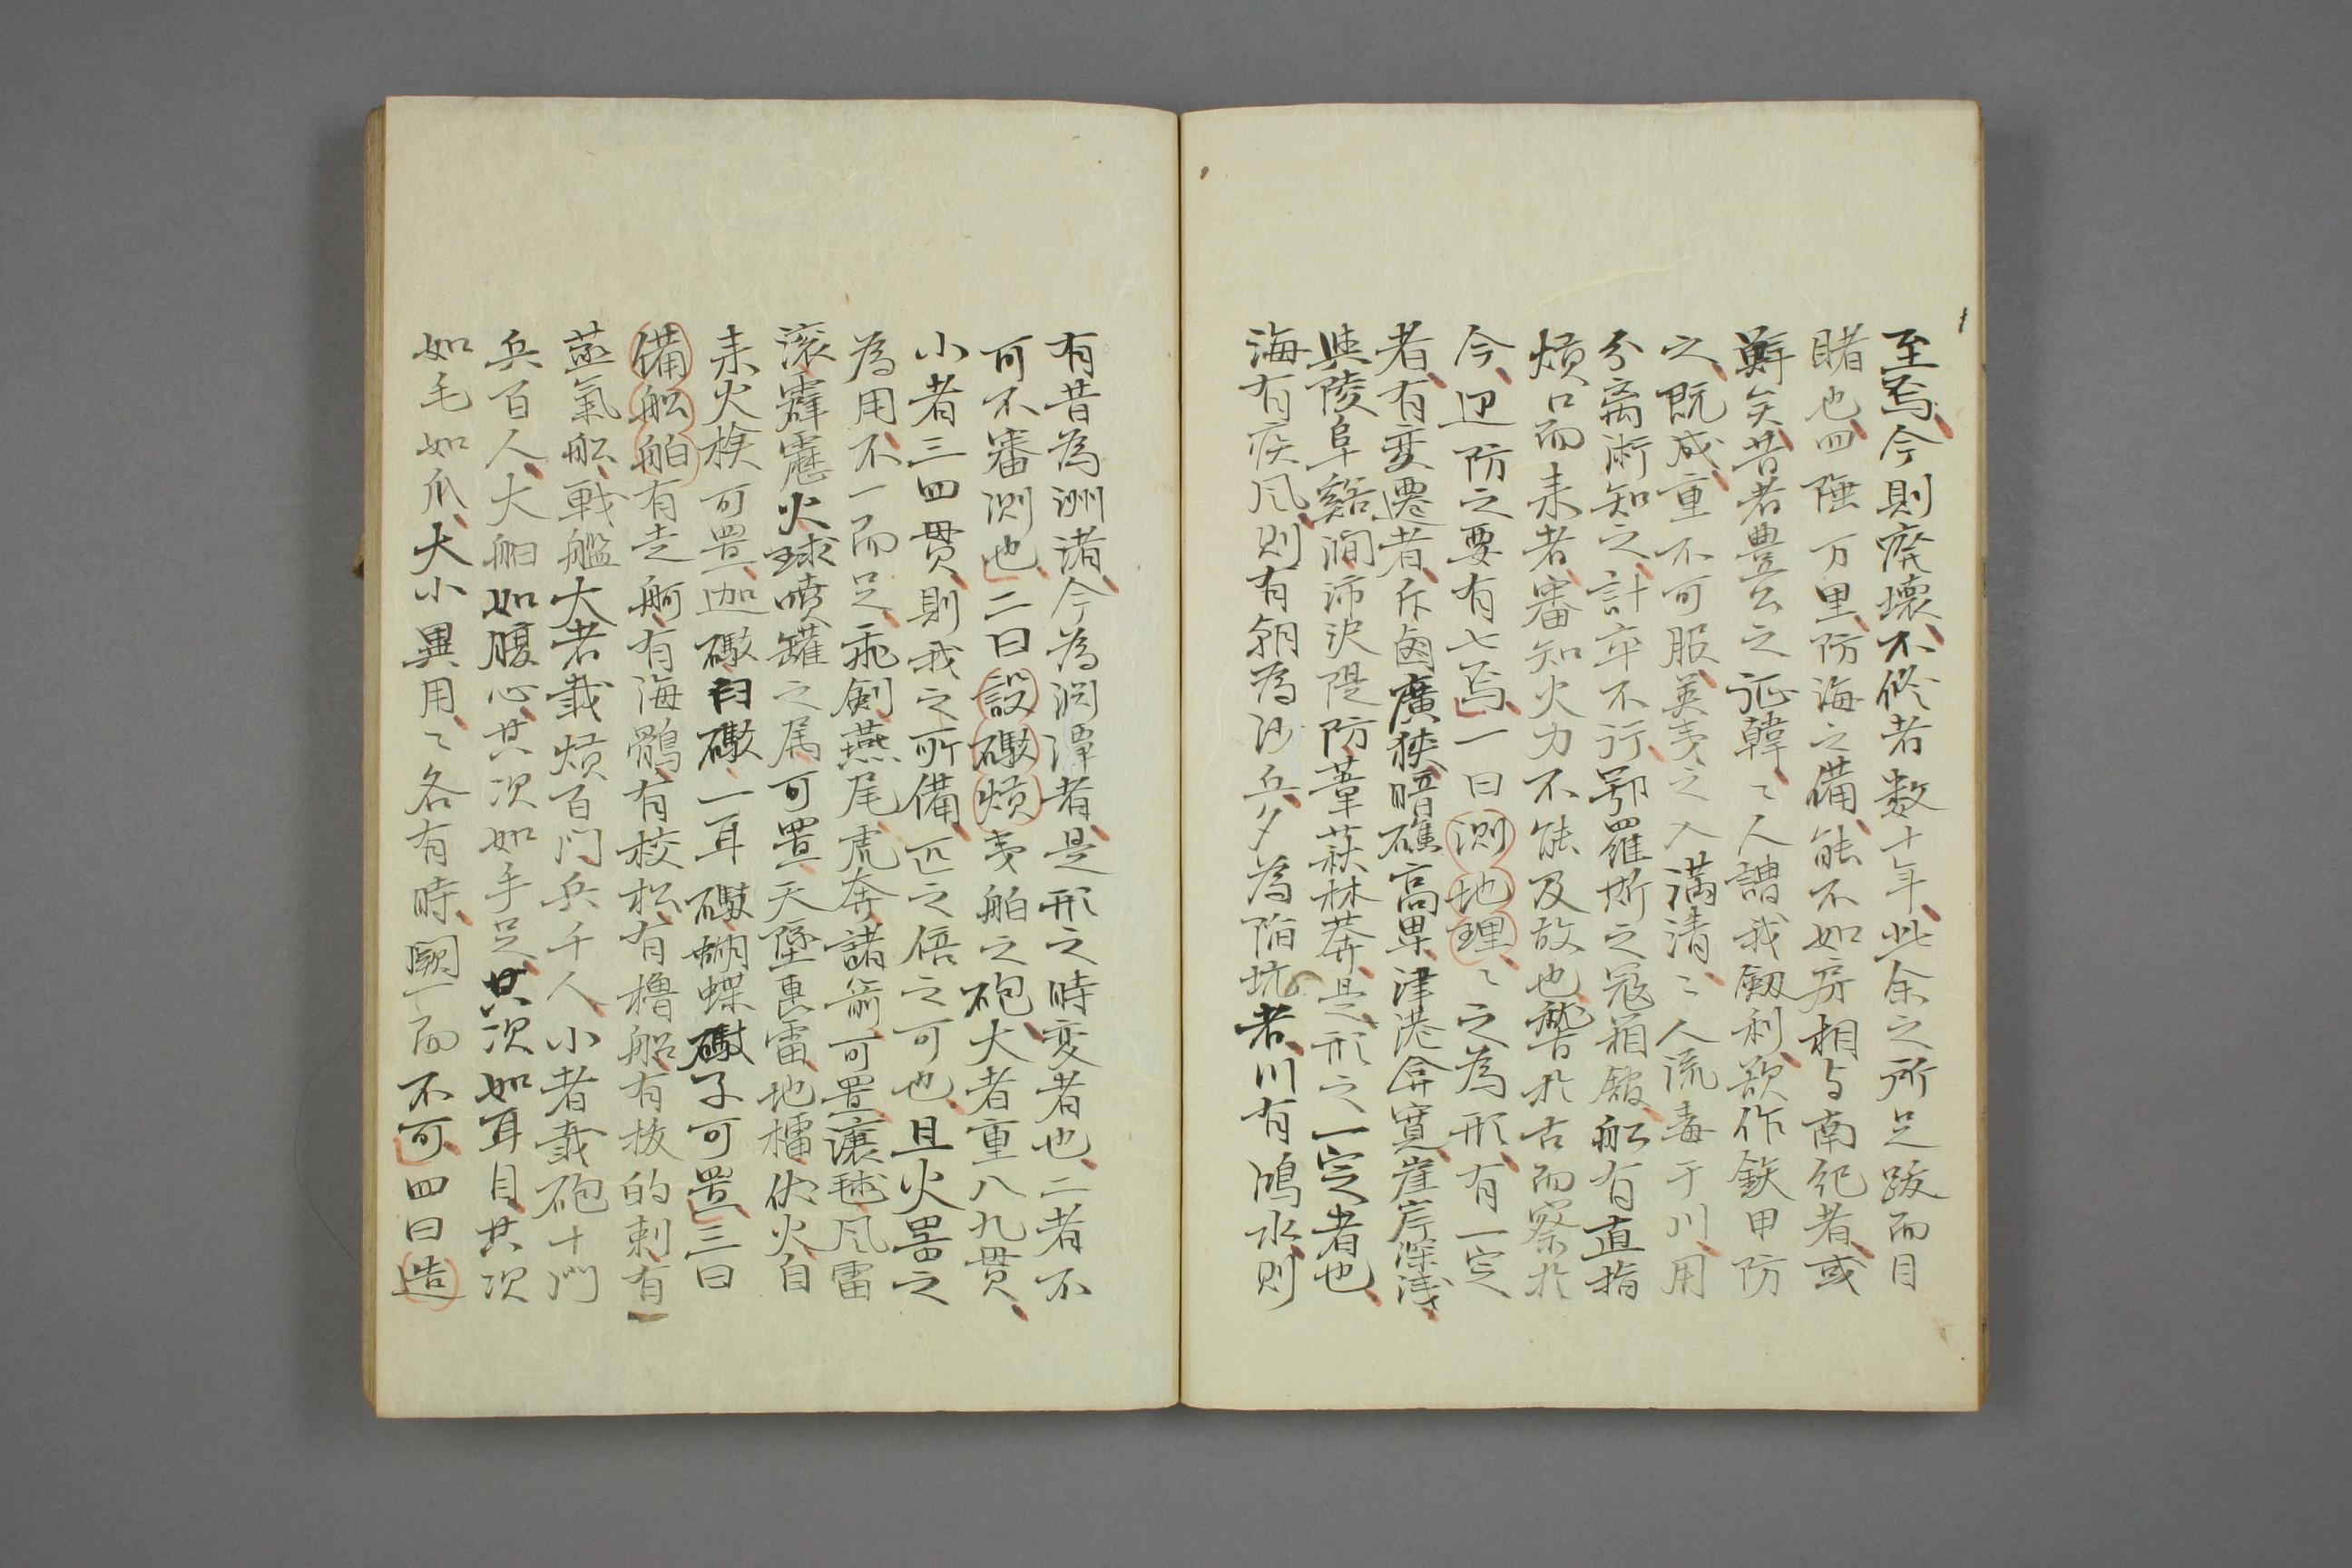 至焉今則廃壊不修者数十年此余之所足跋而目
睹也四陲万里防海之備能不如房相与南紀者或
鮮矣昔者豊公之証韓〻人謂我劔利欲作鉄甲防
之既成重不可服英夷之入満清〻人流毒于川用
分离術知之計卒不行鄂羅斯之冦箱舘舩有直指
熕口而耒者審知火力不能及故也鑒於古而察於
今辺防之要有七焉一曰測地理〻之為形有一定
者有変遷者斥鹵廣狭暗礁高卑津港弇寛崖岸深浅
與陵阜谿澗沛沢隄防葦荻林莽是形之一定者也
海有疾风則有朝為沙兵夕為陥坑者川有鴻水則
有昔為洲渚今為渕潭者是形之時変者也二者不
可不審測也二曰設礟熕夷舶之砲大者重八九貫
小者三四貫則我之所備匹之倍之可也且火器之
為用不一而足飛劍燕尾虎奔諸箭可置瀼毬风雷
滚霹靂火球噴罐之属可置天墜惠雷地櫺伏火自
耒火検可置迦礟臼礟一耳礟蝴蝶礟子可置三曰
備舩舶有走舸有海鶻有校松有櫓船有抜的刺有
蒸氣舩戦艦大者載熕百门兵千人小者載砲十门
兵百人大船如腹心其次如手足其次如耳目其次
如毛如爪大小異用〻各有時闕一而不可四曰造